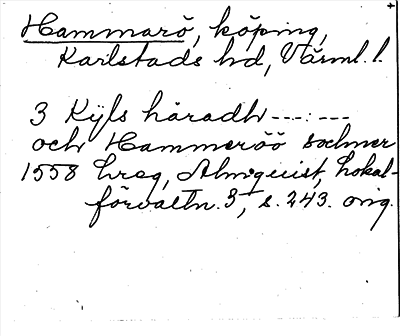 Hammarö, köping,
Karlstads hd, Värml. l.
3 Kijls häradh ---:---
och Hammeröö sochner
1558 hreg, Almquist, Lokal-
förvaltn. 3, s. 243. orig.